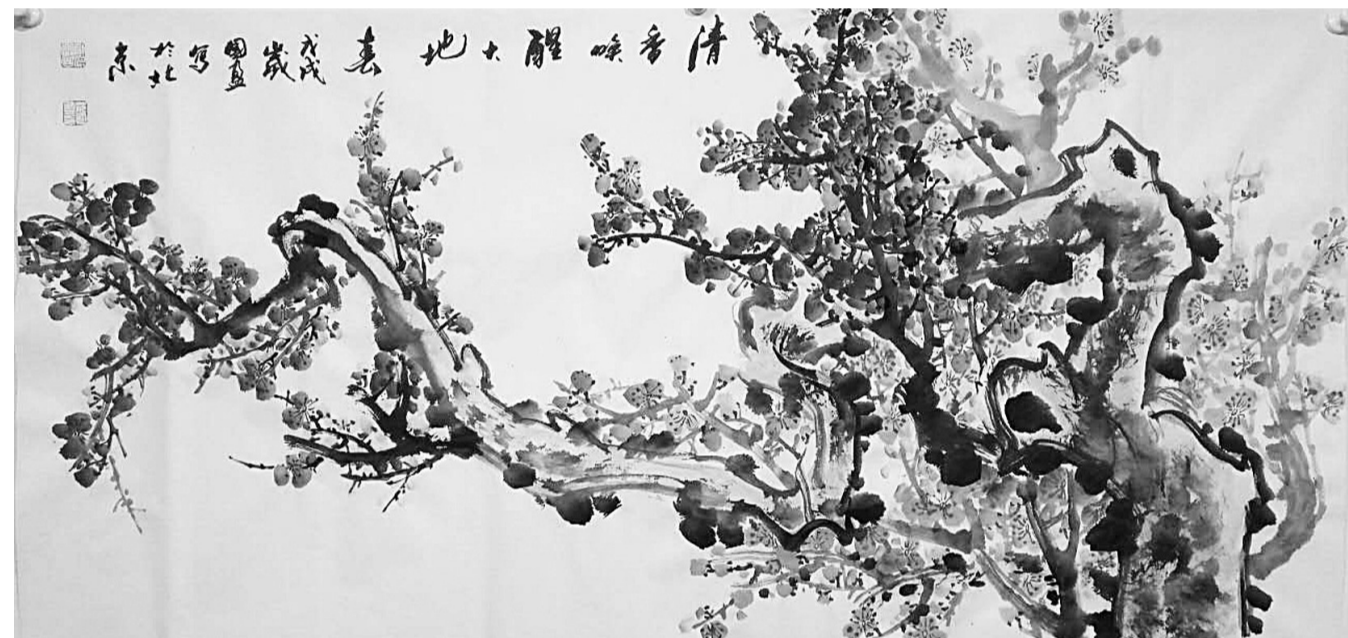 清香唤醒大地春
戊戌
岁
国盈
写
於北
京